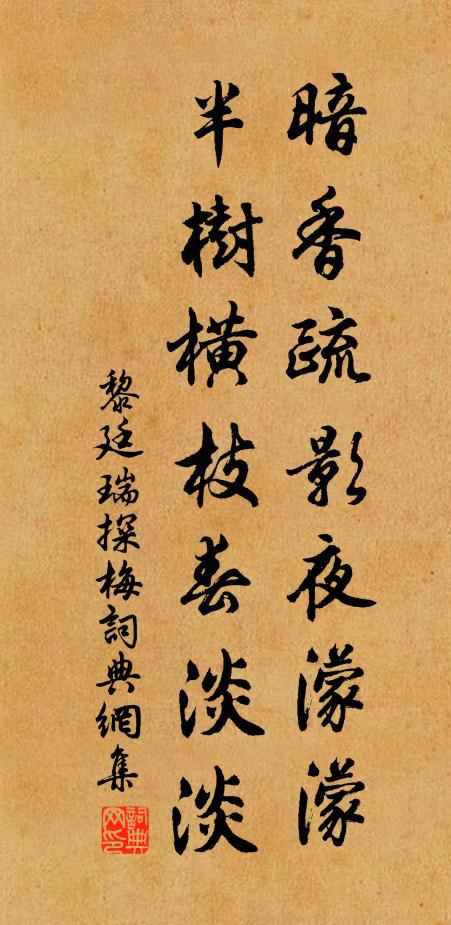 暗香疏影夜濛濛
半樹横枝春淡淡
黎廷瑞探梅詞典網集
詞典网印